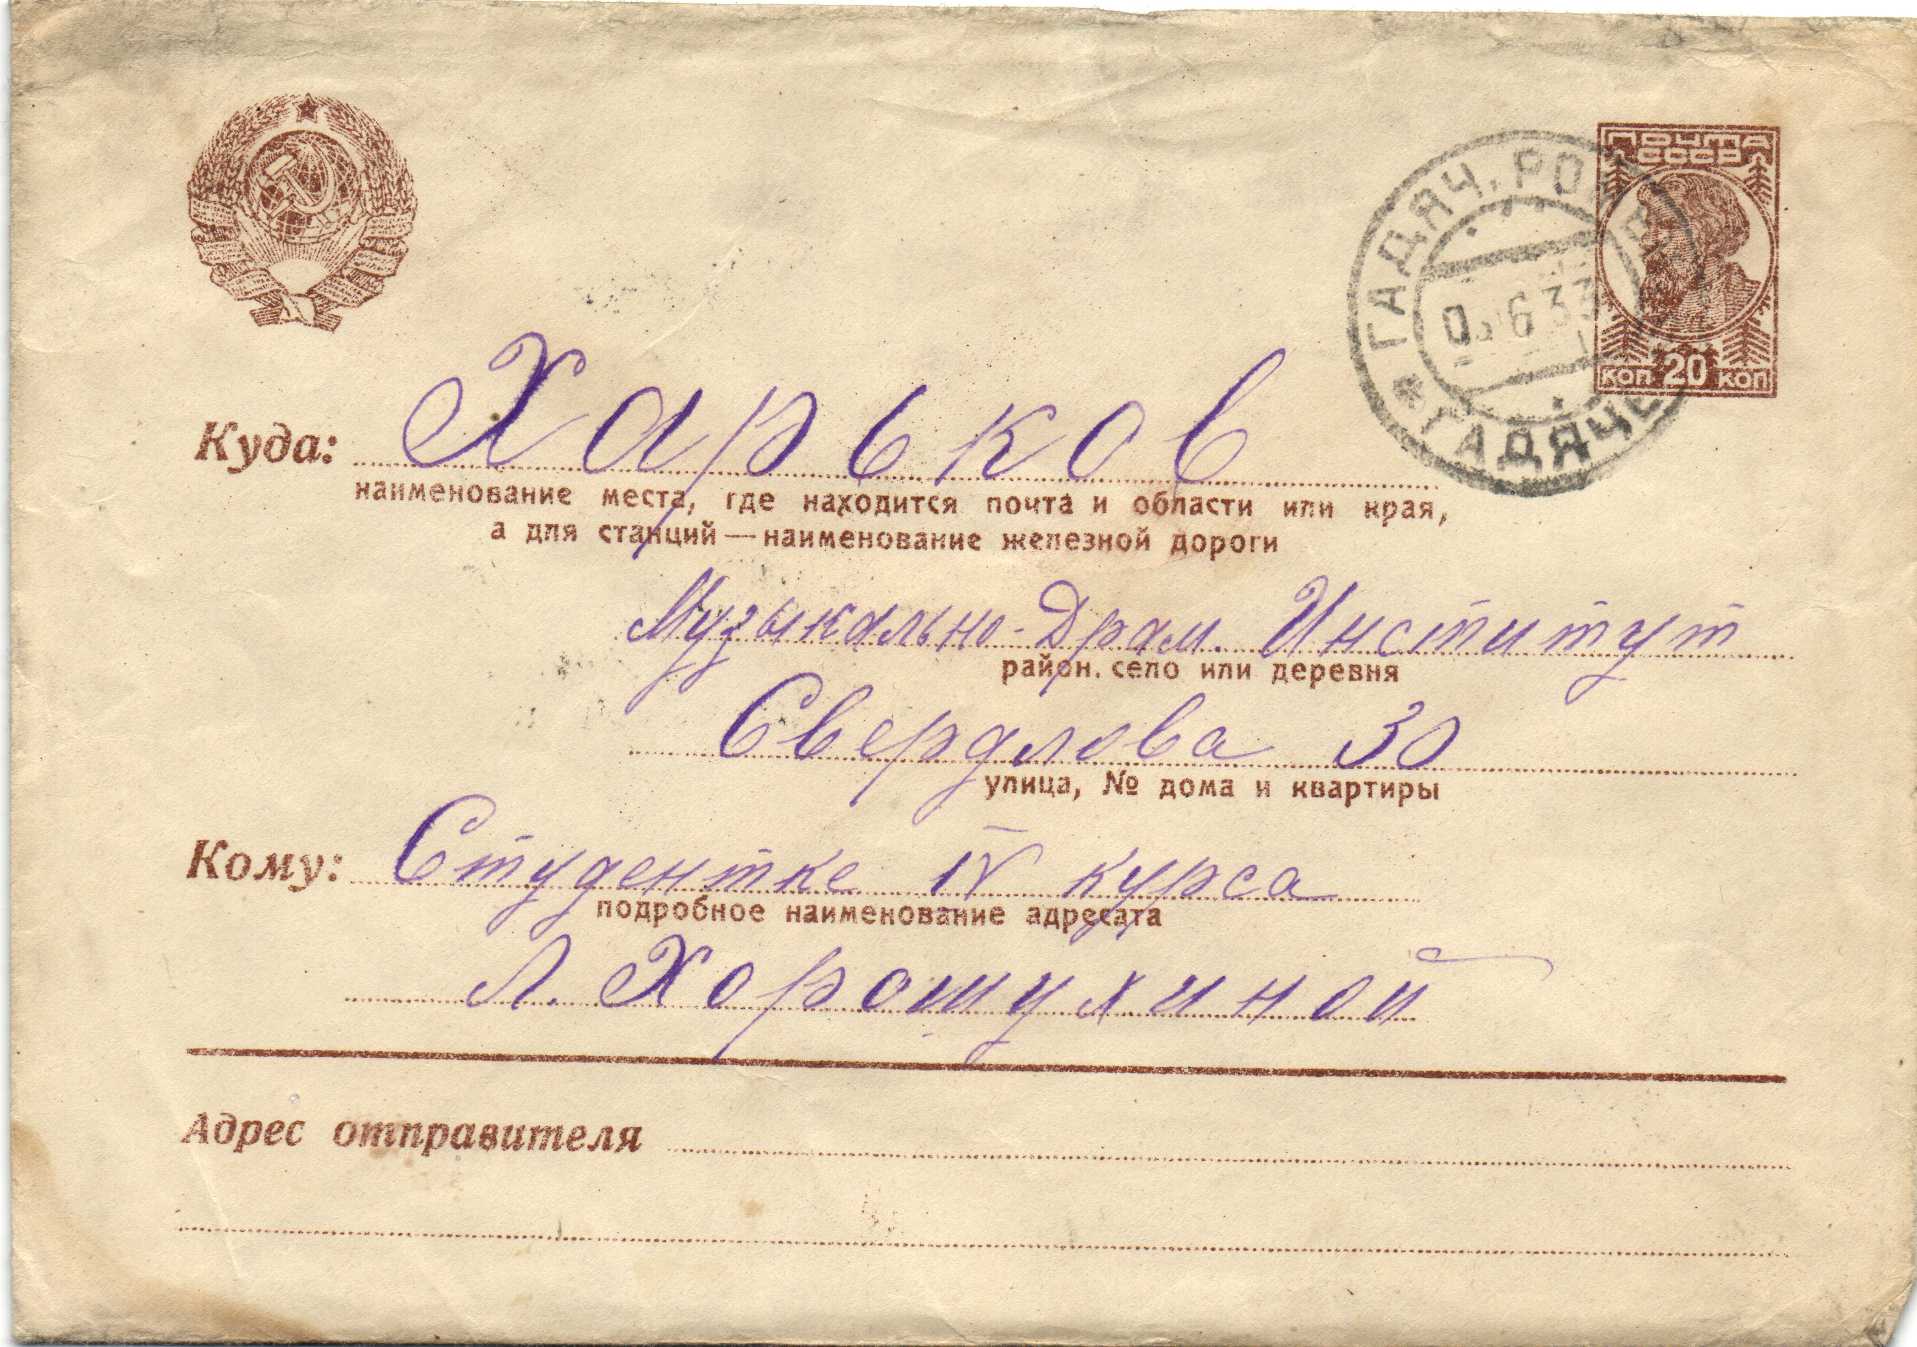 ПОЧТА
СССР
КОП 20 КОП
ГАДЯЧ. ГАДЯЧЕ
6 33
Куда: Харьков
наименование места, где находится почта и области или края,
а для станций — наименование железной дороги
Музыкально-Драм. Институт
район. село или деревня
Свердлова 30
улица, № дома и квартиры
Кому: Студентке IV курса
подробное наименование адресата
Л. Хорошухиной
Адрес отправителя